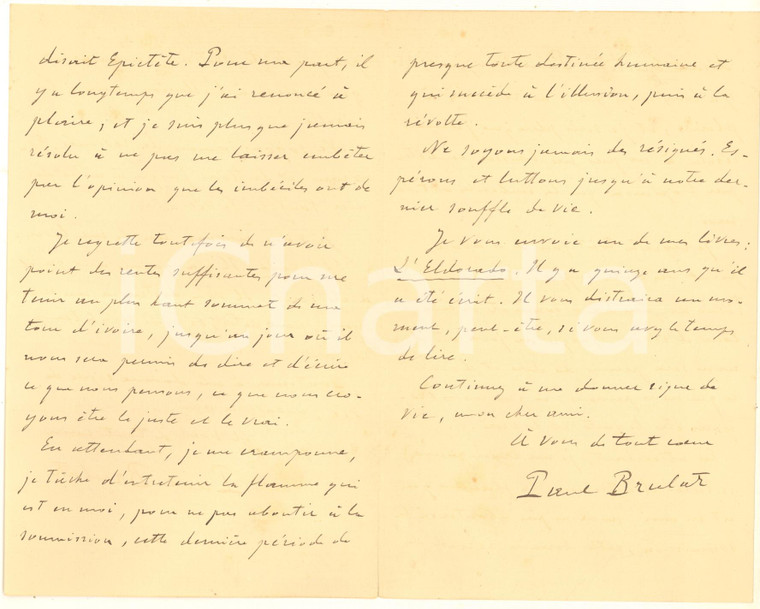 disait Epictète. Pour ma part, il
y a longtemps que j'ai renoncé à
plaire, et je suis plus que jamais
résolu à ne pas me laisser embêter
par l'opinion que les imbéciles ont de
moi.
Je regrette toutefois de n'avoir
point des rentes suffisantes pour me
tenir au plus haut sommet d'une
tour d'ivoire, jusqu'au jour où il
nous sera permis de dire et d'écrire
ce que nous pensons, ce que nous cro-
yons être le juste et le vrai.
En attendant, je me cramponne,
je tâche d'entretenir la flamme qui
est en moi, pour ne pas aboutir à la
soumission, cette dernière période de
presque toute destinée humaine et
qui succède à l'illusion, puis à la
révolte.
Ne soyons jamais des résignés. Es-
pérons et luttons jusqu'à notre der-
nier souffle de vie.
Je vous envoie un de mes livres:
L'Eldorado. Il y a quinze ans qu'il
a été écrit. Il vous distraira un mo-
ment, peut-être, si vous avez le temps
de lire.
Continuez à me donner signe de
vie, mon cher ami.
À vous de tout cœur
Paul Brulat
iCharta